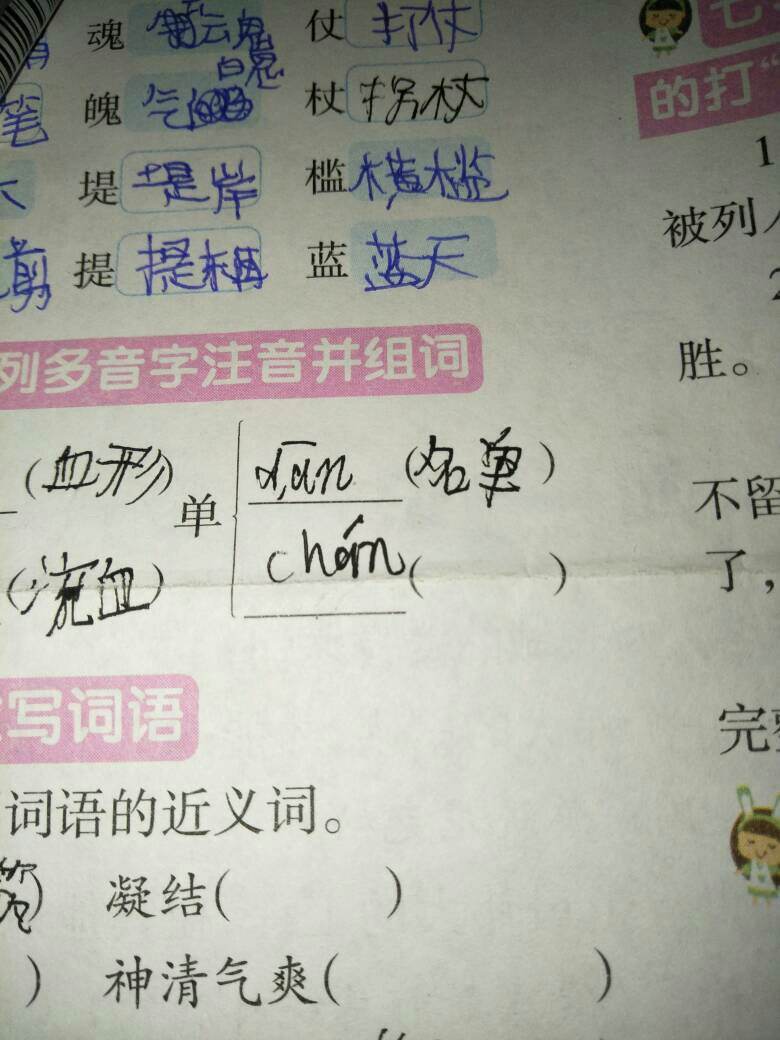 魂 魂 仗 打仗 七
笔 魄 气魄 杖 拐杖 的打“
堤 堤岸 槛 横槛 1
剪 提 提相 蓝 蓝天 被列
列多音字注音并组词 胜。
(血形) 单 dān (名单) 不留
(流血) chán ( ) 了，
写词语 完整
词语的近义词。
) 凝结( )
) 神清气爽( )